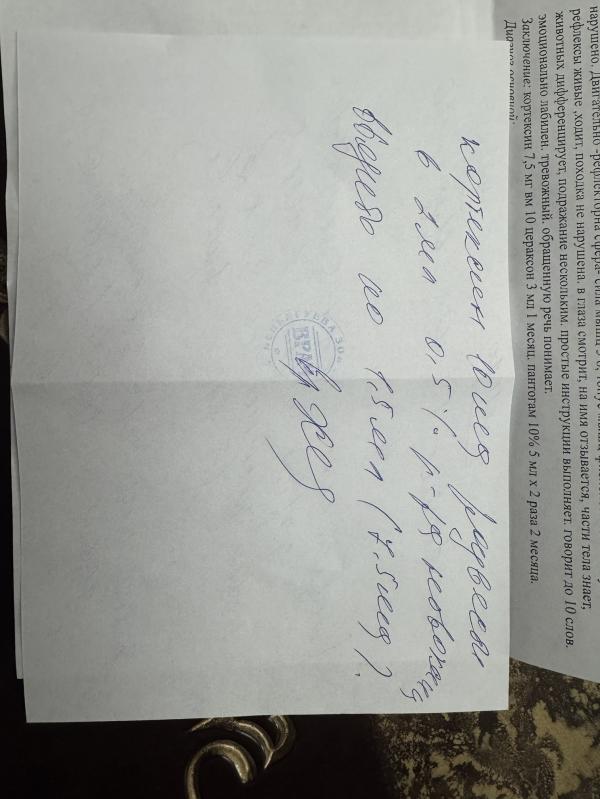 нарушено. Двигательно -рефлекторна сфера- сила мышц 5 б, тонус мышц
рефлексы живые ,ходит, походка не нарушена. в глаза смотрит, на имя отзывается, части тела знает,
животных дифференцирует, подражание нескольким. простые инструкции выполняет. говорит до 10 слов.
эмоционально лабилен. тревожный. обращенную речь понимает.
Заключение: кортексин 7,5 мг вм 10 цераксон 3 мл 1 месяц. пантогам 10% 5 мл х 2 раза 2 месяца.
Диагноз основной:
кортексин 10мг развести
в 2мл 0.5% р-ра новокаина
вводить по 1.5мл (7.5мг).
ВРАЧ